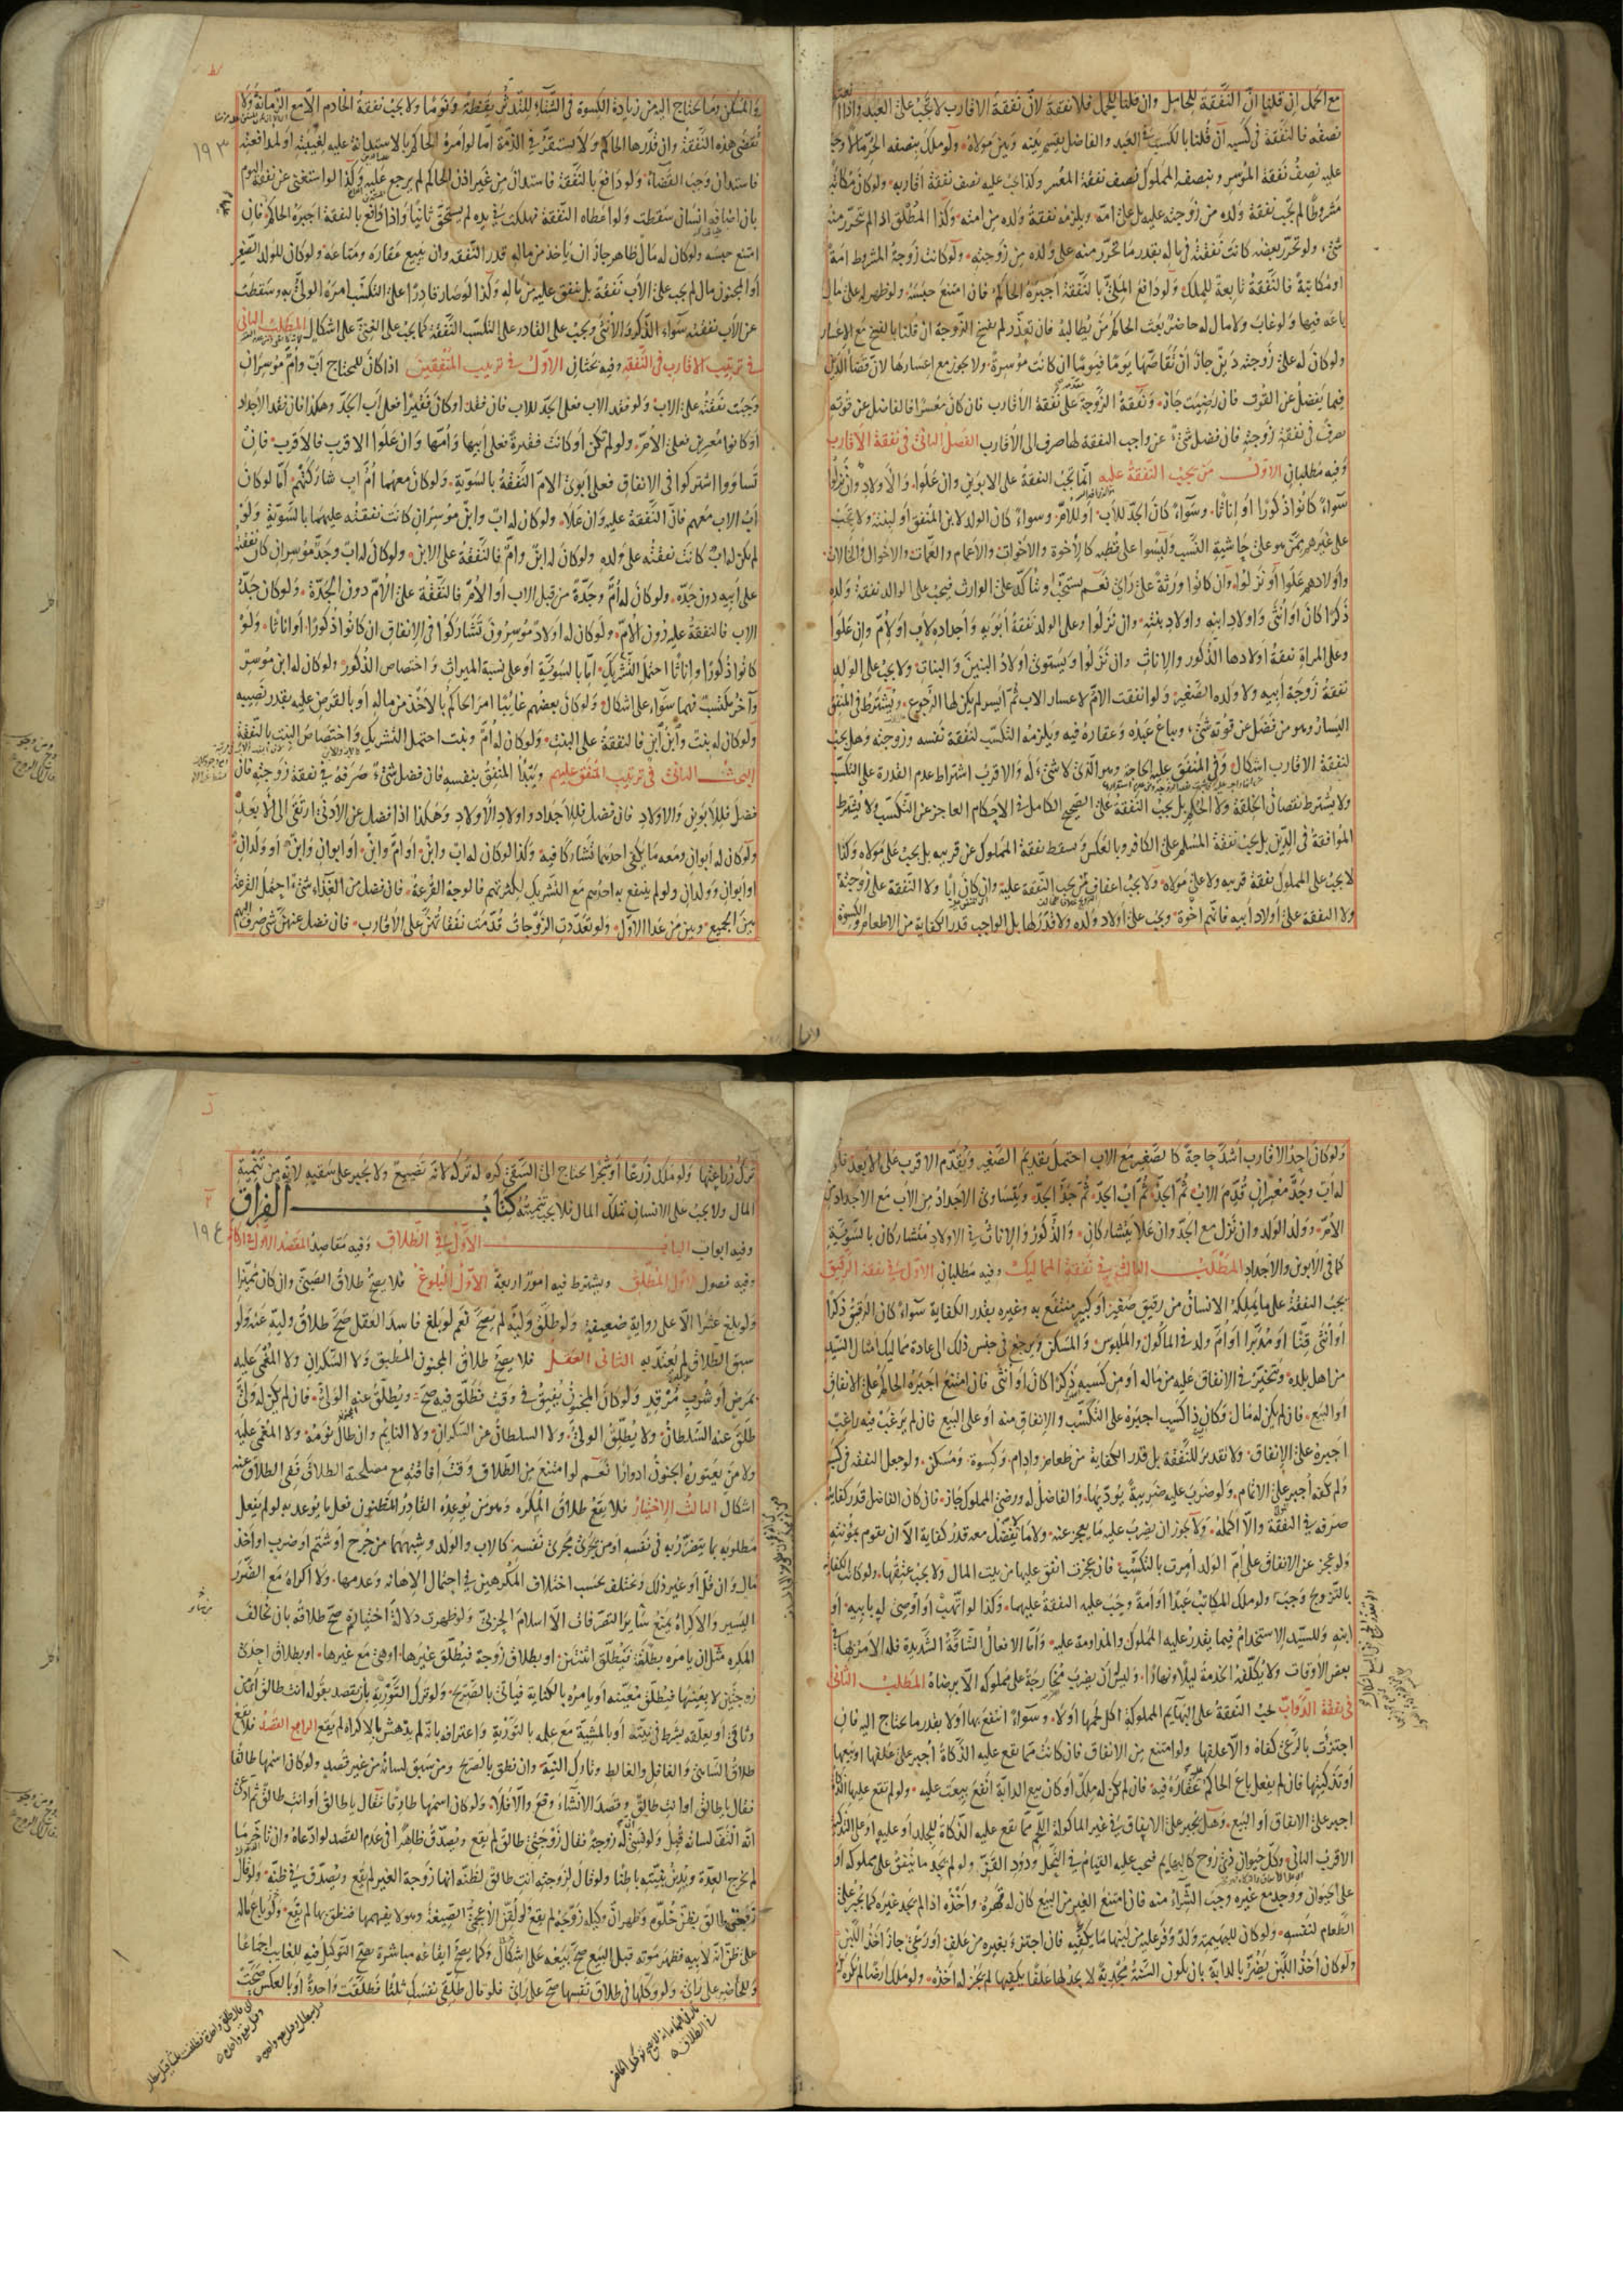 مع الحمل ان قلنا انّ النفقة للحامل وان قلنا للحمل فلا نفقة لانّ نفقة الاقارب لا تجب على العبد واذا
نصفه فالنفقة في كسبه ان قلنا بالكسب في العبد والفاضل يقسم بينه وبين مولاه ولو ملك بنصفه الحر مالا وجب
عليه نصف نفقة الموسر وبنصفه المملوك نصف نفقة المعسر وكذا يجب عليه نصف نفقة اقاربه ولو كان مكاتبا
مشروطا لم يجب نفقة ولده من زوجته عليه بل على امه ويلزمه نفقة ولده من امته وكذا المطلق اذا لم يتحرر منه
شيء ولو تحرر بعضه كانت نفقته في ماله بقدر ما تحرر منه على ولده من زوجته ولو كانت زوجة المشروط امة
او مكاتبة فالنفقة تابعة للملك ولو دافع الملي بالنفقة اجبره الحاكم فان امتنع حبسه ولو ظهر له على مال
باعه فيها ولو غاب ولا مال له حاضر بعث الحاكم من يطالبه فان تعذر لم يفسخ الزوجة ان قلنا بالفسخ مع الاعسار
ولو كان له على زوجته دين جاز ان يقاصها يوما فيوما ان كانت موسرة ولا يجوز مع اعسارها لان قضاء الدين
فيما يفضل عن القوت فان رضيت جاز ونفقة الزوجة مقدمة على نفقة الاقارب فان كان معسرا فالفاضل عن قوته
صرف في نفقة زوجته فان فضل شيء عن واجب النفقة لها صرف الى الاقارب الفصل الثاني في نفقة الاقارب
وفيه مطلبان الاول من يجب النفقة عليه انما يجب النفقة على الابوين وان علوا والاولاد وان نزلوا
سواء كانوا ذكورا او اناثا وسواء كان الجد للاب او للام وسواء كان الولد لابن المنفق او لبنته ولا تجب
على غيرهم ممن هو على حاشية النسب وليسوا على قطبه كالاخوة والاخوات والاعمام والعمات والاخوال والخالات
واولادهم علوا او نزلوا وان كانوا ورثة على راي نعم يستحب ويتاكد على الوارث فيجب على الوالد نفقة ولده
ذكرا كان او انثى واولاد ابنه واولاد بنته وان نزلوا وعلى الولد نفقة ابويه واجداده لاب او لام وان علوا
وعلى المراة نفقة اولادها الذكور والاناث وان نزلوا ويستوي اولاد البنين والبنات ولا يجب على الولد
نفقة زوجة ابيه ولا ولده الصغير ولو انفقت الام لاعسار الاب ثم ايسر لم يكن لها الرجوع ويشترط في المنفق
اليسار وهو من فضل عن قوته شيء ويباع عبده وعقاره فيه ويلزمه التكسب لنفقة نفسه وزوجته وهل يجب
لنفقة الاقارب اشكال وفي المنفق عليه الحاجة وهو الذي لا شيء له والاقرب اشتراط عدم القدرة على التكسب
ولا يشترط نقصان الخلقة ولا الحكم بل يجب النفقة على الصحيح الكامل في الاحكام العاجز عن التكسب ولا يشترط
الموافقة في الدين بل يجب نفقة المسلم على الكافر وبالعكس ويسقط نفقة المملوك عن قريبه بل يجب على مولاه وكذا
لا يجب على المملوك نفقة قريبه ولا على مولاه ولا يجب اعفاف من يجب النفقة عليه وان كان ابا ولا النفقة على زوجته
ولا النفقة على اولاد ابيه فانهم اخوة ويجب على اولاد ولده ولا قدر لها بل الواجب قدر الكفاية من الاطعام والكسوة
والمسكن وما يحتاج اليه من زيادة الكسوة في الشتاء للتدثر يقظة ونوما ولا يجب نفقة الخادم الا مع الزمانة ولا
تقضى هذه النفقة وان قدرها الحاكم ولا يستقر في الذمة اما لو امره الحاكم بالاستدانة عليه لغيبته او لمدافعته
فاستدان وجب القضاء ولو دافع بالنفقة فاستدان من غير اذن الحاكم لم يرجع عليه وكذا لو استغنى عن نفقة اليوم
بان اضافه انسان سقطت ولو اعطاه النفقة فهلكت في يده لم يستحق ثانيا واذا دافع بالنفقة اجبره الحاكم فان
امتنع حبسه ولو كان له مال ظاهر جاز ان ياخذ من ماله قدر النفقة وان يبيع عقاره ومتاعه ولو كان للولد الصغير
او المجنون مال لم يجب على الاب نفقة بل ينفق عليه من ماله وكذا لو صار قادرا على التكسب امره الولي به وسقطت
عن الاب نفقته سواء الذكر والانثى ويجب على القادر على التكسب النفقة كما يجب على الغني على اشكال المطلب الثاني
في ترتيب الاقارب في النفقة وفيه بحثان الاول في ترتيب المنفقين اذا كان للمحتاج اب وام موسران
وجبت نفقته على الاب ولو فقد الاب فعلى الجد للاب فان فقد او كان فقيرا فعلى اب الجد وهكذا فان فقد الاجداد
او كانوا معسرين فعلى الام ولو لم تكن او كانت فقيرة فعلى ابيها وامها وان علوا الاقرب فالاقرب فان
تساووا اشتركوا في الانفاق فعلى ابوي الام النفقة بالسوية ولو كان معهما ام اب شاركتهم اما لو كان
اب الاب معهم فان النفقة عليه وان علا ولو كان له اب وابن موسران كانت نفقته عليهما بالسوية ولو
لم يكن له اب كانت نفقته على ولده ولو كان له ابن وام فالنفقة على الابن ولو كان له اب وجد موسران كان نفقته
على ابيه دون جده ولو كان له ام وجدة من قبل الاب او الام فالنفقة على الام دون الجدة ولو كان جد
الاب فالنفقة عليه دون الام ولو كان له اولاد موسرون تشاركوا في الانفاق ان كانوا ذكورا او اناثا ولو
كانوا ذكورا واناثا احتمل التشريك اما بالسوية او على نسبة الميراث واختصاص الذكور ولو كان له ابن موسر
وآخر مكتسب فهما سواء على اشكال ولو كان بعضهم غائبا امر الحاكم بالاخذ من ماله او بالقرض عليه بقدر نصيبه
ولو كان له بنت وابن ابن فالنفقة على البنت ولو كان له ام وبنت احتمل التشريك واختصاص البنت بالنفقة
البحث الثاني في ترتيب المنفق عليهم ويبدا المنفق بنفسه فان فضل شيء صرفه في نفقة زوجته فان
فضل فللابوين والاولاد فان فضل فللاجداد واولاد الاولاد وهكذا اذا فضل عن الادنى ارتقى الى الابعد
ولو كان له ابوان ومعه ما يكفي احدهما تشاركا فيه وكذا لو كان له اب وابن او ام وابن او ابوان وابن او ولدان
او ابوان وولدان ولو لم ينتفع به احدهم مع التشريك لكثرتهم فالوجه القرعة فان فضل من الغذاء شيء احتمل القرعة
بين الجميع وبين من عدا الاول ولو تعددت الزوجات قدمت نفقاتهن على الاقارب فان فضل عنهن شيء صرف اليهم
١٩٣
ولو كان احد الاقارب اشد حاجة كالصغير مع الاب احتمل تقديم الصغير ويقدم الاقرب على الابعد فلو
له اب وجد معسران قدم الاب ثم الجد ثم اب الجد ثم جد الجد ويتساوى الاجداد من الاب مع الاجداد من
الام وولد الولد وان نزل مع الجد وان علا يتشاركان والذكور والاناث في الاولاد متشاركان بالسوية
كما في الابوين والاجداد المطلب الثالث في نفقة المماليك وفيه مطلبان الاول في نفقة الرقيق
يجب النفقة على ما يملكه الانسان من رقيق صغير او كبير منتفع به وغيره بقدر الكفاية سواء كان الرقيق ذكرا
او انثى قنا او مدبرا او ام ولد في الماكول والملبوس والمسكن ويرجع في جنس ذلك الى عادة مماليك امثال السيد
من اهل بلده ويتخير في الانفاق عليه من ماله او من كسبه ذكرا كان او انثى فان امتنع اجبره الحاكم على الانفاق
او البيع فان لم يكن له مال وكان ذا كسب اجبره على التكسب والانفاق منه او على البيع فان لم يرغب فيه راغب
اجبره على الانفاق ولا تقدير للنفقة بل قدر الكفاية من طعام وادام وكسوة ومسكن ولو جعل النفقة في كسبه
ولم يكفه اجبر على الاتمام ولو ضرب عليه ضريبة يؤديها والفاضل له ورضي المملوك جاز فان كان الفاضل قدر كفايته
صرفه في النفقة والا اكمله ولا يجوز ان يضرب عليه ما يعجز عنه ولا ما لا يفضل معه قدر كفايته الا ان يقوم بمؤنته
ولو عجز عن الانفاق على ام الولد امرت بالتكسب فان عجزت انفق عليها من بيت المال ولا يجب عتقها ولو كانت الكفاية
بالتزويج وجب ولو ملك المكاتب عبدا او امة وجب عليه النفقة عليهما وكذا لو اتهب او اوصي له بابيه او
ابنه وللسيد الاستخدام فيما يقدر عليه المملوك والمداومة عليه واما الافعال الشاقة الشديدة فله الامر بها في
بعض الاوقات ولا يكلفه الخدمة ليلا ونهارا وليس له ان يضرب مخارجة على مملوكه الا برضاه المطلب الثاني
في نفقة الدواب يجب النفقة على البهايم المملوكة اكل لحمها او لا وسواء انتفع بها او لا بقدر ما يحتاج اليه فان
اجتزت بالرعي كفاه والا علفها ولو امتنع من الانفاق فان كانت مما يقع عليه الذكاة اجبر على علفها او بيعها
او تذكيتها فان لم يفعل باع الحاكم عقاره فيه فان لم يكن له ملك او كان بيع الدابة انفع بيعت عليه ولو لم تقع عليها الذكاة
اجبر على الانفاق او البيع وهل يجبر على الانفاق في غير الماكولة اللحم مما يقع عليه الذكاة للجلد او عليه او على التذكية
الاقرب الثاني وكل حيوان ذي روح كالبهايم فيجب عليه القيام في النحل ودود القز ولو لم يجد ما ينفق على مملوكه او
على الحيوان ووجد مع غيره وجب الشراء منه فان امتنع الغير من البيع كان له قهره واخذه اذا لم يجد غيره كما يجبر على
الطعام لنفسه ولو كان للبهيمة ولد وفر عليه من لبنها ما يكفيه فان اجتزء بغيره من علف او رعي جاز اخذ اللبن
ولو كان اخذ اللبن يضر بالدابة بان يكون السنة مجدبة لا يجد لها علفا يكفيها لم يجز له اخذه ولو ملك ارضا لم يكره له
ترك زراعتها ولو ملك زرعا او شجرا يحتاج الى السقي كره له تركه لانه تضييع ولا يجبر على سقيه لانه من تنمية
المال ولا يجب على الانسان تملك المال فلا يجب تنميته كتاب الفراق
وفيه ابواب الباب الاول في الطلاق وفيه مقاصد المقصد الاول في اركانه
وفيه فصول الاول المطلق ويشترط فيه امور اربعة الاول البلوغ فلا يصح طلاق الصبي وان كان مميزا
ولو بلغ عشرا الا على رواية ضعيفة ولو طلق وليه لم يصح نعم لو بلغ فاسد العقل صح طلاق وليه عنه ولو
سبق الطلاق لم يعتد به الثاني العقل فلا يصح طلاق المجنون المطبق ولا السكران ولا المغمى عليه
بمرض او شرب مرقد ولو كان المجنون يفيق في وقت فطلق فيه صح ويطلق عنه الولي فان لم يكن له ولي
طلق عنه السلطان ولا يطلق الولي ولا السلطان عن السكران ولا النائم وان طال نومه ولا المغمى عليه
ولا من يعتوره الجنون ادوارا نعم لو امتنع من الطلاق وقت افاقته مع مصلحة الطلاق ففي الطلاق عنه
اشكال الثالث الاختيار فلا يقع طلاق المكره وهو من توعده القادر المظنون فعل ما يوعد به لو لم يفعل
مطلوبه بما يتضرر به في نفسه او من يجري مجرى نفسه كالاب والولد وشبههما من جرح او شتم او ضرب او اخذ
مال وان قل او غير ذلك ويختلف بحسب اختلاف المكرهين في احتمال الاهانة وعدمها ولا اكراه مع الضرر
اليسير والاكراه يمنع سائر التصرفات الا اسلام الحربي ولو ظهرت دلالة اختياره صح طلاقه بان يخالف
المكره مثل ان يامره بطلقة فيطلق اثنتين او بطلاق زوجة فيطلق غيرها او هي مع غيرها او بطلاق احدى
زوجتيه لا بعينها فيطلق معينة او يامره بالكناية فياتي بالصريح ولو ترك التورية بان يقصد بقوله انت طالق من
وثاقي او يعلقه بشرط في نيته او بالمشية مع علمه بالتورية واعترافه بانه لم يدهش بالاكراه لم يقع الرابع القصد فلا يقع
طلاق الساهي والغافل والغالط وتارك النية وان نطق بالصريح ومن سبق لسانه من غير قصد ولو كان اسمها طالقا
فقال يا طالق او انت طالق وقصد الانشاء وقع والا فلا ولو كان اسمها طارقا فقال يا طالق او انت طالق ثم ادعى
انه التف لسانه قبل ولو نسي ان له زوجة فقال زوجتي طالق لم يقع ويصدق ظاهرا في عدم القصد لو ادعاه وان تاخر ما
لم تخرج العدة ويدين بنيته باطنا ولو قال لزوجته انت طالق لظنه انها زوجة الغير لم يقع ويصدق في ظنه ولو قال
زوجتي طالق بظن خلوه وظهر ان وكيله زوجه لم يقع ولو لقن الاعجمي الصيغة وهو لا يفهمها فنطق بها لم يقع ولو باع ماله
على ظن انه لابيه فظهر موته قبل البيع صح بيعه على اشكال وكما يصح ايقاعه مباشرة يصح التوكيل فيه للغايب اجماعا
وللحاضر على راي ولو وكلها في طلاق نفسها صح على راي فلو قال طلقي نفسك ثلثا فطلقت واحدة او بالعكس صحت
١٩٤